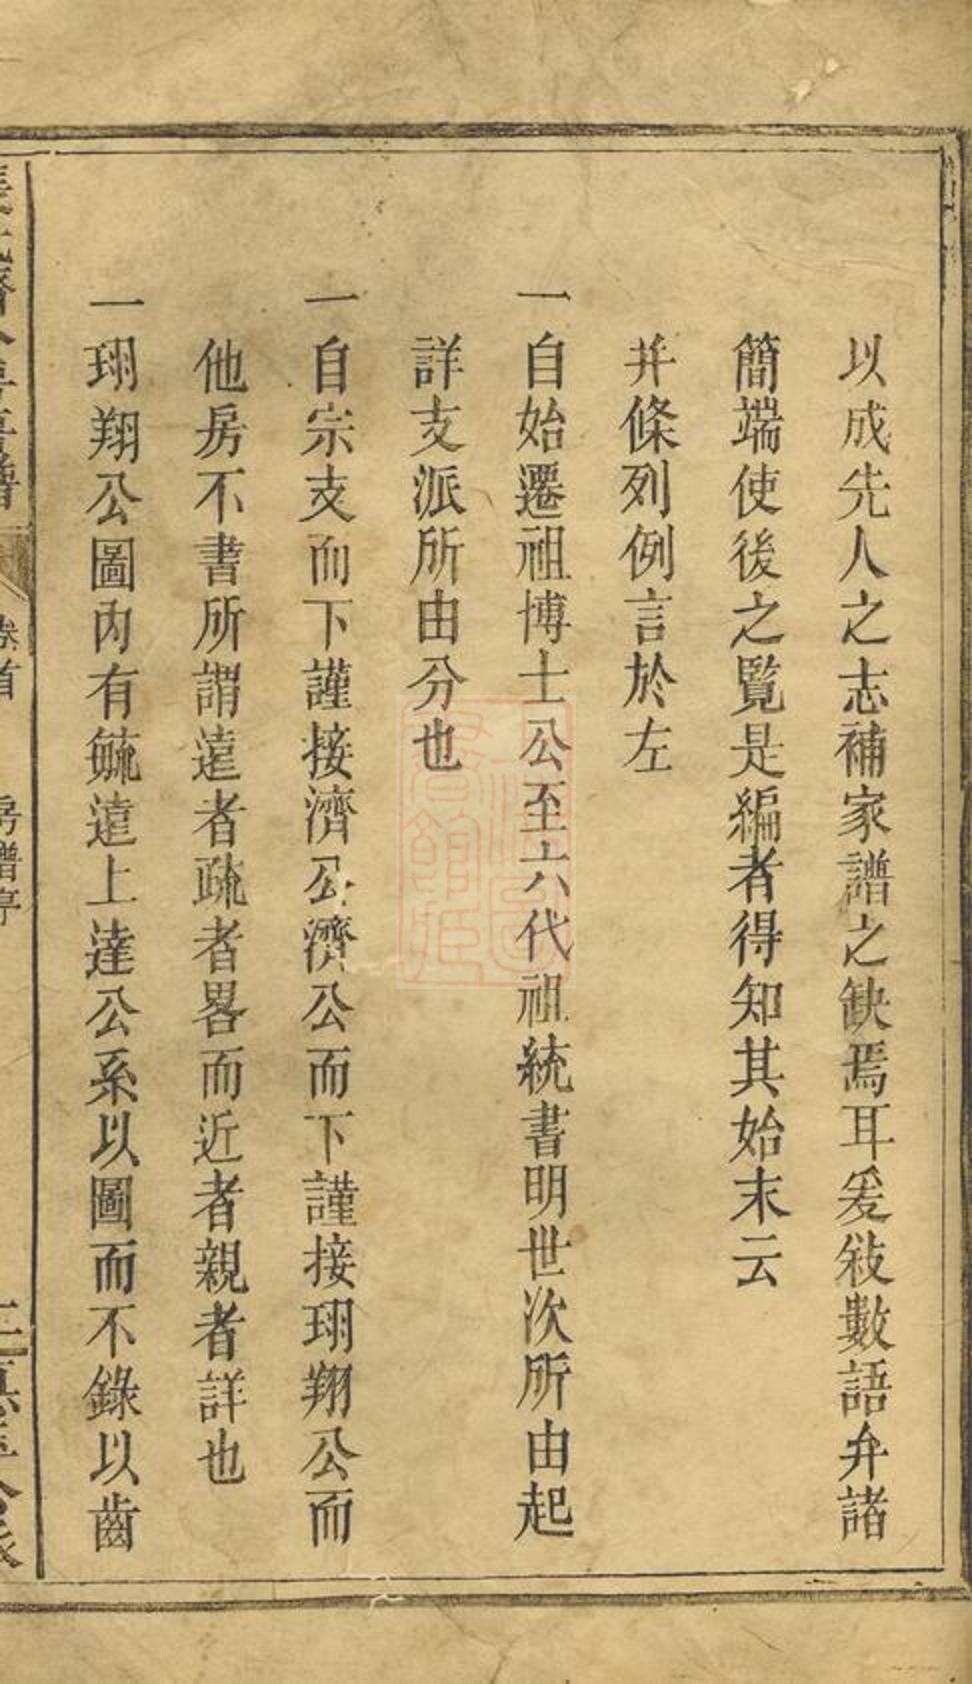 以成先人之志補家譜之缺焉耳爰敍數語弁諸
簡端使後之覽是編者得知其始末云
并條列例言於左
一自始遷祖博士公至六代祖統書明世次所由起
詳支派所由分也
一自宗支而下謹接濟公濟公而下謹接珝翔公而
他房不書所謂遠者疏者畧而近者親者詳也
一珝翔公圖內有毓遠上達公系以圖而不錄以齒
卷首
房譜序